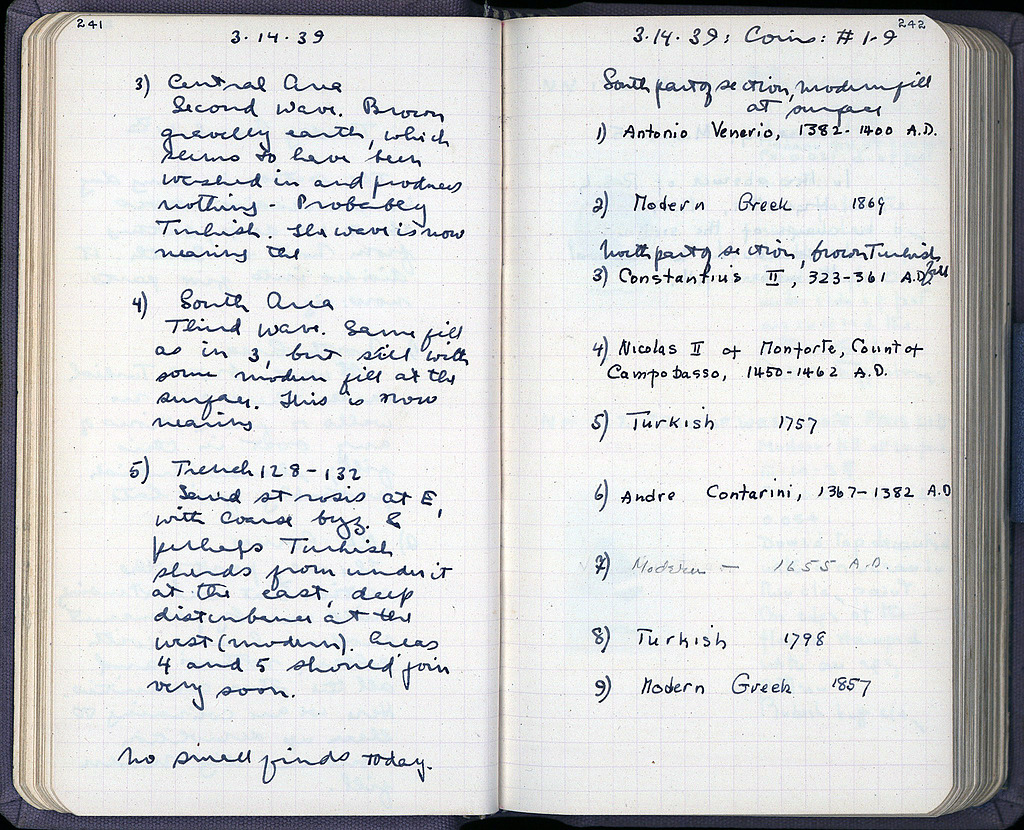 241
3.14.39
3) Central Area
Second wave. Brown
gravelly earth, which
seems to have been
washed in and produces
nothing - Probably
Turkish. The wave is now
nearing the
4) South Area
Third wave. Same fill
as in 3, but still with
some modern fill at the
surface. This is now
nearing
5) Trench 128-132
Sand strosis at E,
with coarse byz. &
perhaps Turkish
sherds from under it
at the east, deep
disturbance at the
west (modern). Areas
4 and 5 should join
very soon.
No small finds today.
242
3.14.39: Coins: #1-9
South part of section, modern fill
at surface
1) Antonio Venerio, 1382-1400 A.D.
2) Modern Greek 1869
North part of section, brown Turkish
fill
3) Constantius II, 323-361 A.D.
4) Nicolas II of Monforte, Count of
Campobasso, 1450-1462 A.D.
5) Turkish 1757
6) Andre Contarini, 1367-1382 A.D
7) Modern - 1655 A.D.
8) Turkish 1798
9) Modern Greek 1857